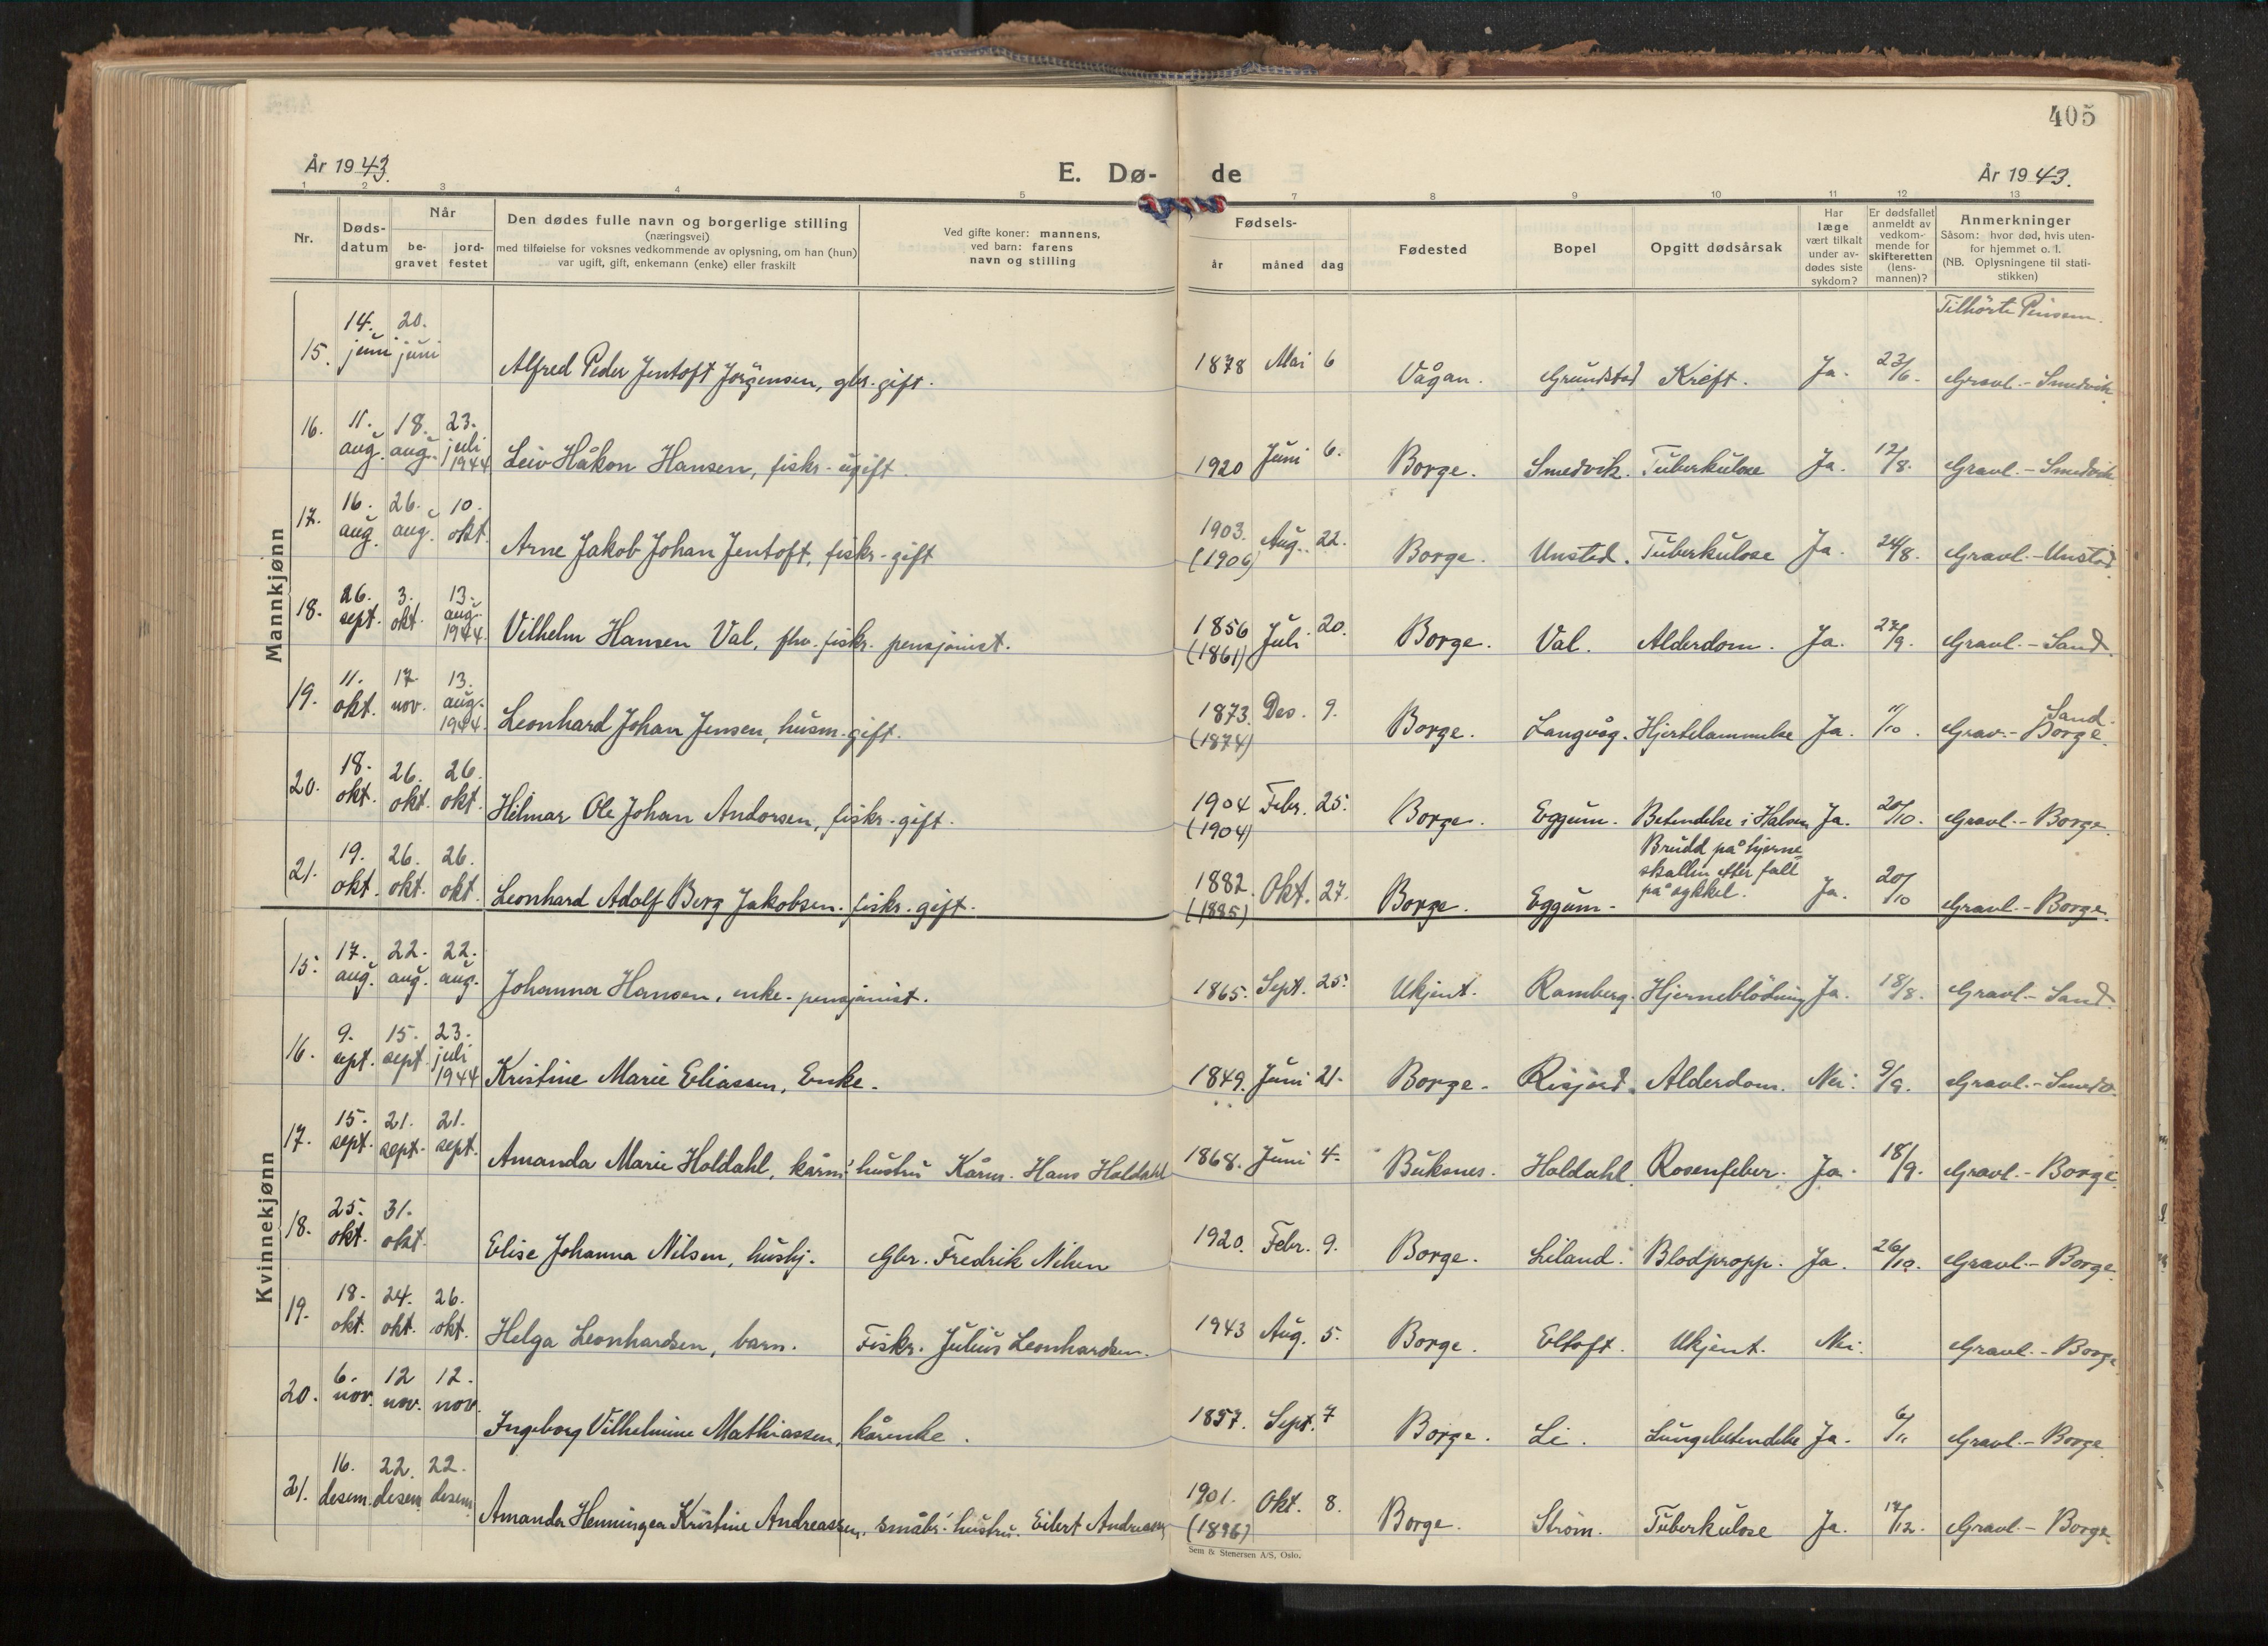 405
År 1943.
E. Dø-
de
År 1943.
1 2 3 4 5 7 8 9 10 11 12 13
Nr.
Døds-
datum
Når
be-
gravet
jord-
festet
Den dødes fulle navn og borgerlige stilling
(næringsvei)
med tilføielse for voksnes vedkommende av oplysning, om han (hun)
var ugift, gift, enkemann (enke) eller fraskilt
Ved gifte koner: mannens,
ved barn: farens
navn og stilling
Fødsels-
år måned dag
Fødested
Bopel
Opgitt dødsårsak
Har
læge
vært tilkalt
under av-
dødes siste
sykdom?
Er dødsfallet
anmeldt av
vedkom-
mende for
skifteretten
(lens-
mannen)?
Anmerkninger
Såsom: hvor død, hvis uten-
for hjemmet o. l.
(NB. Oplysningene til stati-
stikken)
Mannkjønn
Tilhörte
15. 14. juni 20. juni Alfred Peder Jentoft Jörgensen, gbr. gift. 1878 Mai 6 Vågan. Grundstad Kreft. Ja. 23/6. Gravl. - Smedvik.
16. 11. aug. 18. aug. 23. juli 1944 Leiv Håkon Hansen, fiskr. ugift. 1920 Juni 6. Borge. Smedvik. Tuberkulose Ja. 12/8. Gravl. - Smedvik
17. 16. aug. 26. aug. 10. okt. Arne Jakob Johan Jentoft, fiskr. gift 1903. (1906) Aug. 22. Borge. Unstad. Tuberkulose Ja. 24/8. Gravl. - Unstad.
18. 26. sept. 3. okt. 13. aug. 1944. Vilhelm Hansen Val, fhv. fiskr. pensjonist. 1856 (1861) Juli 20. Borge. Val. Alderdom. Ja. 27/9. Gravl. - Sand.
19. 11. okt. 17 nov. 13. aug. 1944. Leonhard Johan Jensen, husm. gift. 1873. (1874) Des. 9. Borge. Langvåg. Hjertelammelse Ja. 11/10. Grav. - Borge. Sand.
20. 18. okt. 26. okt. 26. okt. Hilmar Ole Johan Andorsen, fiskr. gift. 1904 (1904) Febr. 25. Borge. Eggum. Betendelse i Halsen Ja. 20/10. Gravl. - Borge.
21. 19. okt. 26. okt. 26. okt. Leonhard Adolf Berg Jakobsen. fiskr. gift. 1882. (1885) Okt. 27. Borge. Eggum. Brudd på hjerne
skallen efter fall
på sykkel. Ja. 20/10 Gravl. - Borge.
Kvinnekjønn
15. 17. aug. 22. aug. 22. aug. Johanna Hansen, enke. pensjonist. 1865. Sept. 25. Ukjent. Ramberg. Hjerneblödning Ja. 18/8. Gravl. - Sand.
16. 9. sept. 15. sept. 23. juli 1944 Kristine Marie Eliassen, Enke. 1849. Juni 21. Borge. Risjord. Alderdom. Nei. 9/9. Gravl. - Smedv.
17. 15. sept. 21. sept. 21. sept. Amanda Marie Holdahl, kårm. hustru Kårm. Hans Holdahl 1868. Juni 4. Buksnes. Holdahl. Rosenfeber. Ja. 18/9. Gravl. - Borge.
18. 25. okt. 31. okt. Elise Johanna Nilsen, hushj. Gbr. Fredrik Nilsen 1920. Febr. 9. Borge. Liland. Blodpropp. Ja. 26/10. Gravl. - Borge.
19. 18. okt. 24. okt. 26. okt. Helga Leonhardsen, barn. Fiskr. Julius Leonhardsen. 1943 Aug. 5. Borge. Eltoft. Ukjent. Nei. Gravl. - Borge
20. 6. nov. 12 nov. 12. nov. Ingeborg Vilhelmine Mathiassen, kårenke. 1857. Sept. 7 Borge. Li. Lungebetendelse Ja. 6/11 Gravl. - Borge
21. 16. desem. 22. desem 22. desem. Amanda Henningea Kristine Andreassen, småbr. hustru. Eilert Andreassen 1901. (1896) Okt. 8. Borge. Ström. Tuberkulose Ja. 17/12. Gravl. - Borge.
Sem & Stenersen A/S, Oslo.